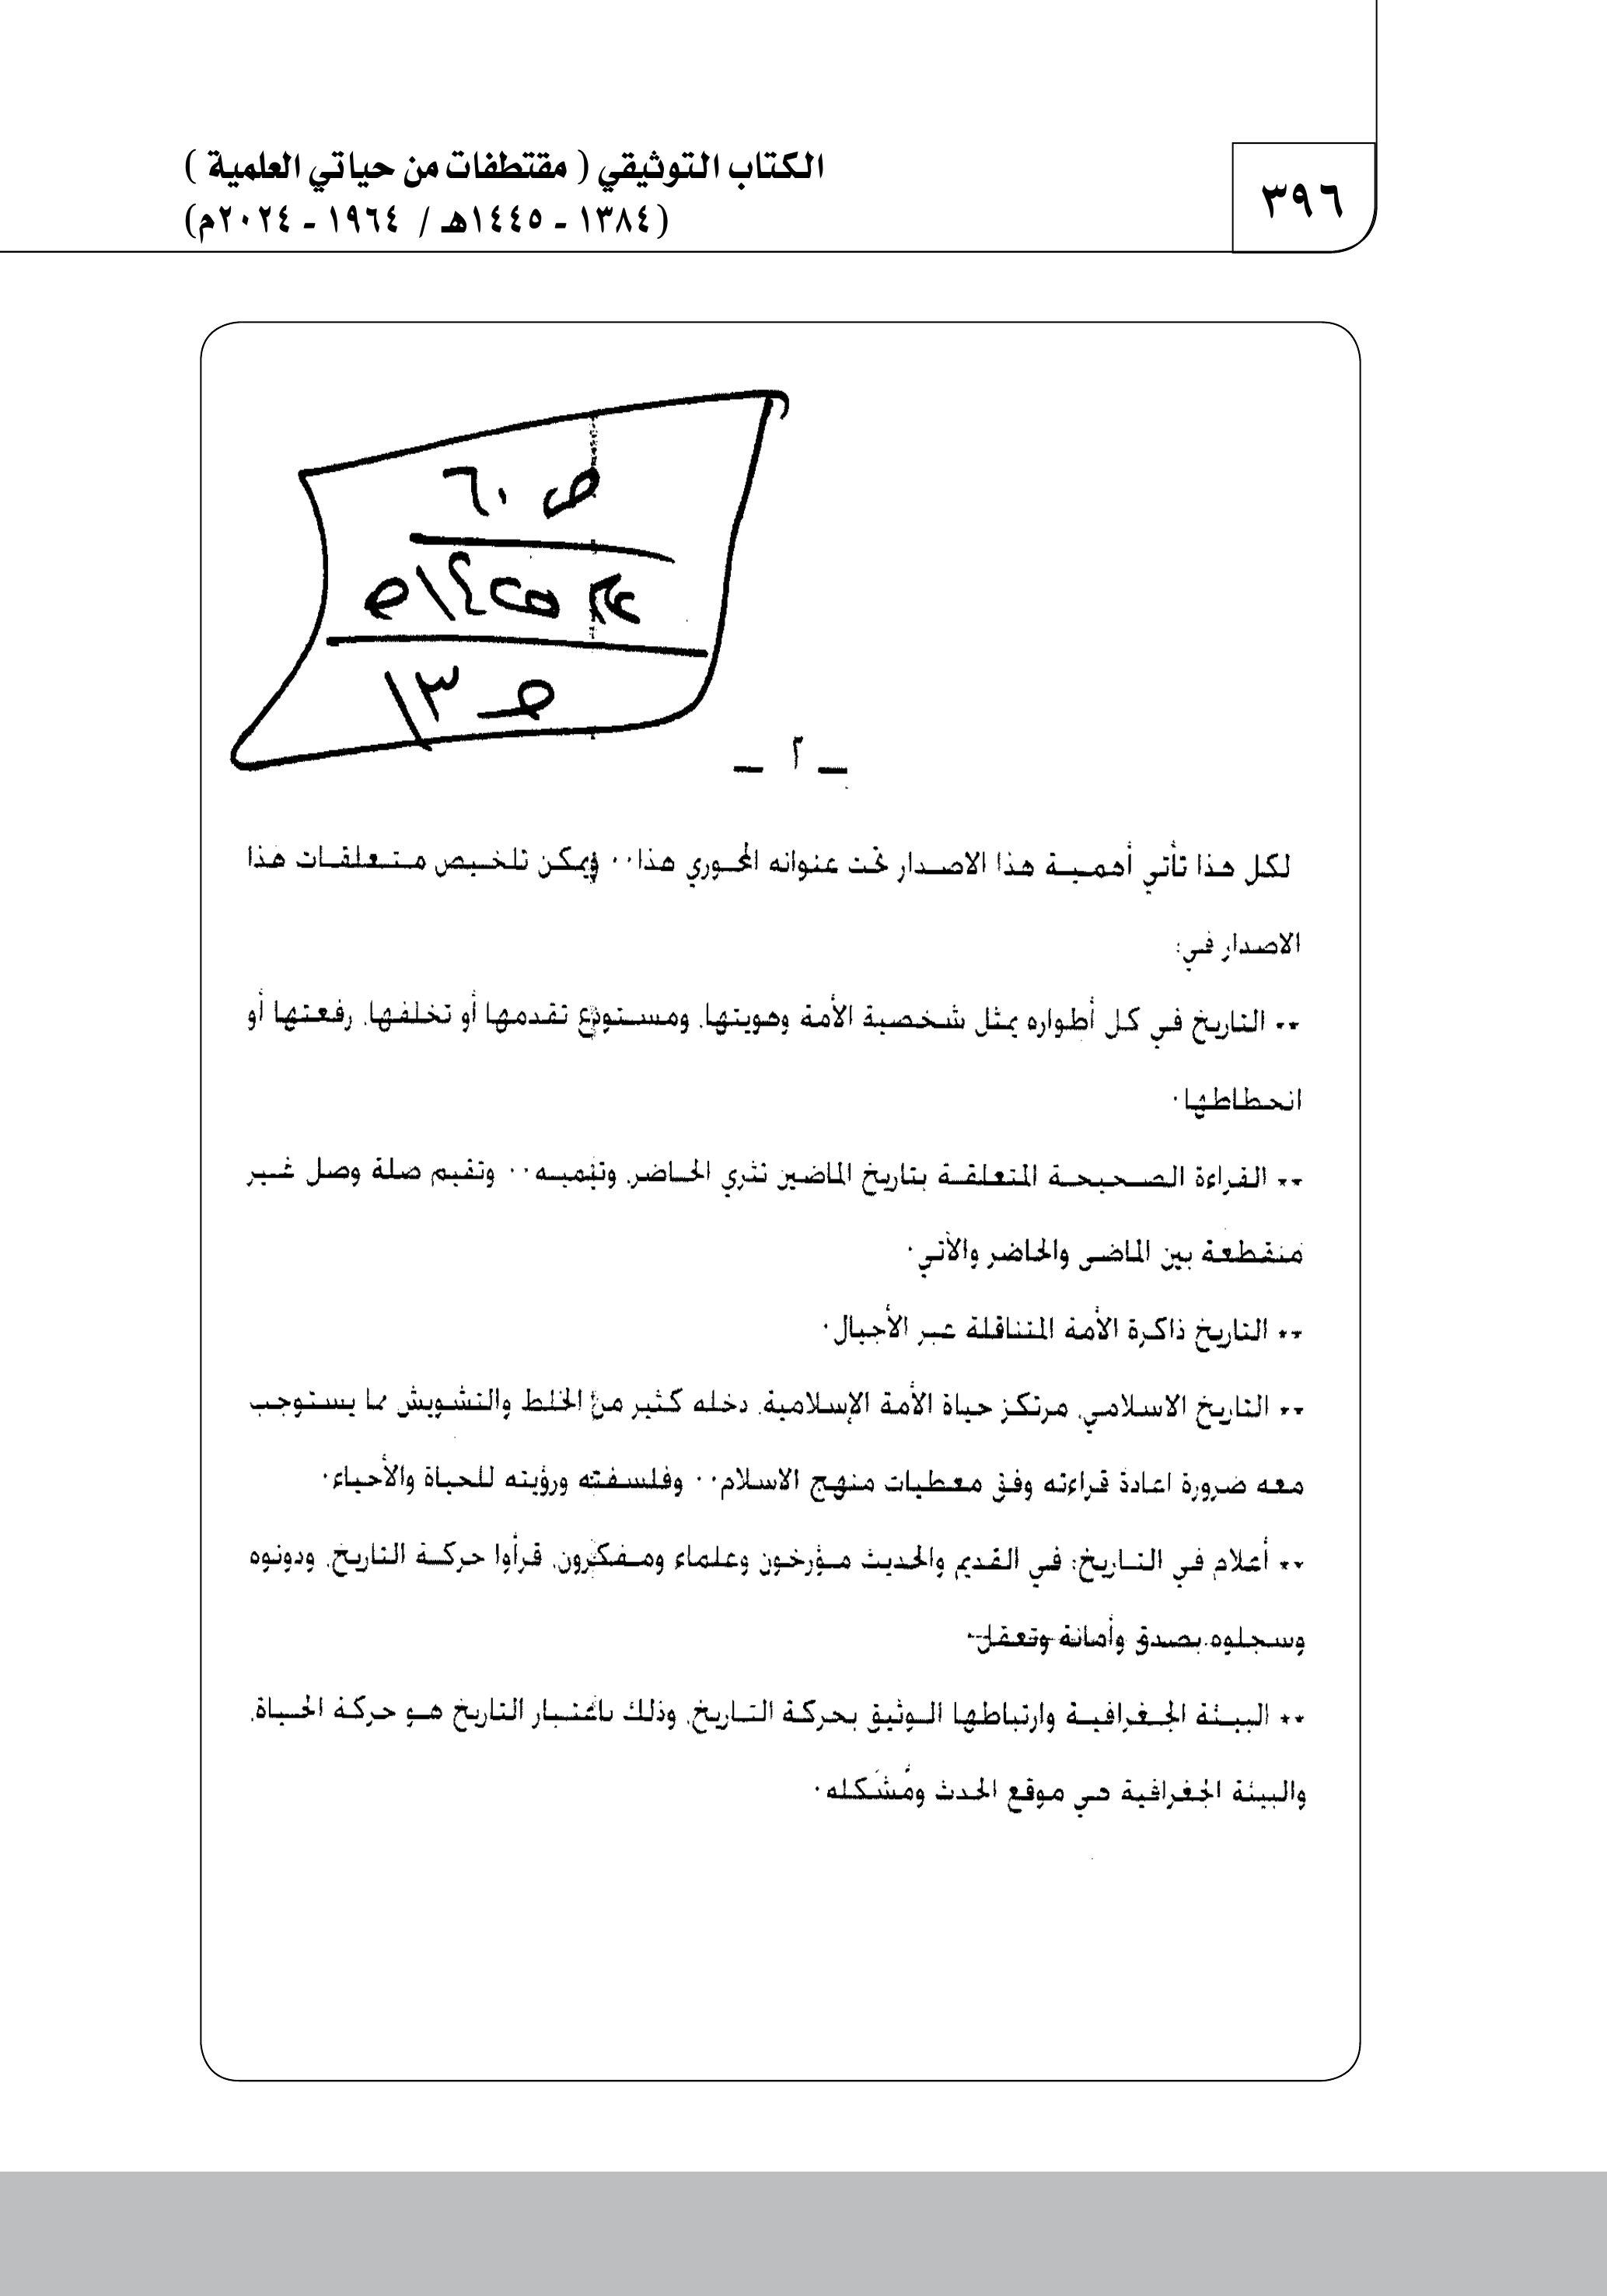 الكتاب التوثيقي ( مقتطفات من حياتي العلمية )
(١٣٨٤ - ١٤٤٥هـ / ١٩٦٤ - ٢٠٢٤م)
٣٩٦
ص ٦٠
ص ١٣
ـ ٢ ـ
لكل هذا تأتي أهمية هذا الاصدار تحت عنوانه المحوري هذا٠٠ ويمكن تلخيص متعلقات هذا
الاصدار في:
** التاريخ في كل أطواره يمثل شخصية الأمة وهويتها، ومستودع تقدمها أو تخلفها، رفعتها أو
انحطاطها٠
** القراءة الصحيحة المتعلقة بتاريخ الماضين تثري الحاضر، وتنميه٠٠ وتقيم صلة وصل غير
منقطعة بين الماضى والحاضر والآتي٠
** التاريخ ذاكرة الأمة المتناقلة عبر الأجيال٠
** التاريخ الاسلامي، مرتكز حياة الأمة الإسلامية، دخله كثير من الخلط والتشويش مما يستوجب
معه ضرورة اعادة قراءته وفق معطيات منهج الاسلام٠٠ وفلسفته ورؤيته للحياة والأحياء٠
** أعلام في التاريخ: في القديم والحديث مؤرخون وعلماء ومفكرون، قرأوا حركة التاريخ، ودونوه
وسجلوه بصدق وأمانة وتعقل٠
** البيئة الجغرافية وارتباطها الوثيق بحركة التاريخ، وذلك باعتبار التاريخ هو حركة الحياة،
والبيئة الجغرافية هي موقع الحدث ومُشكله٠